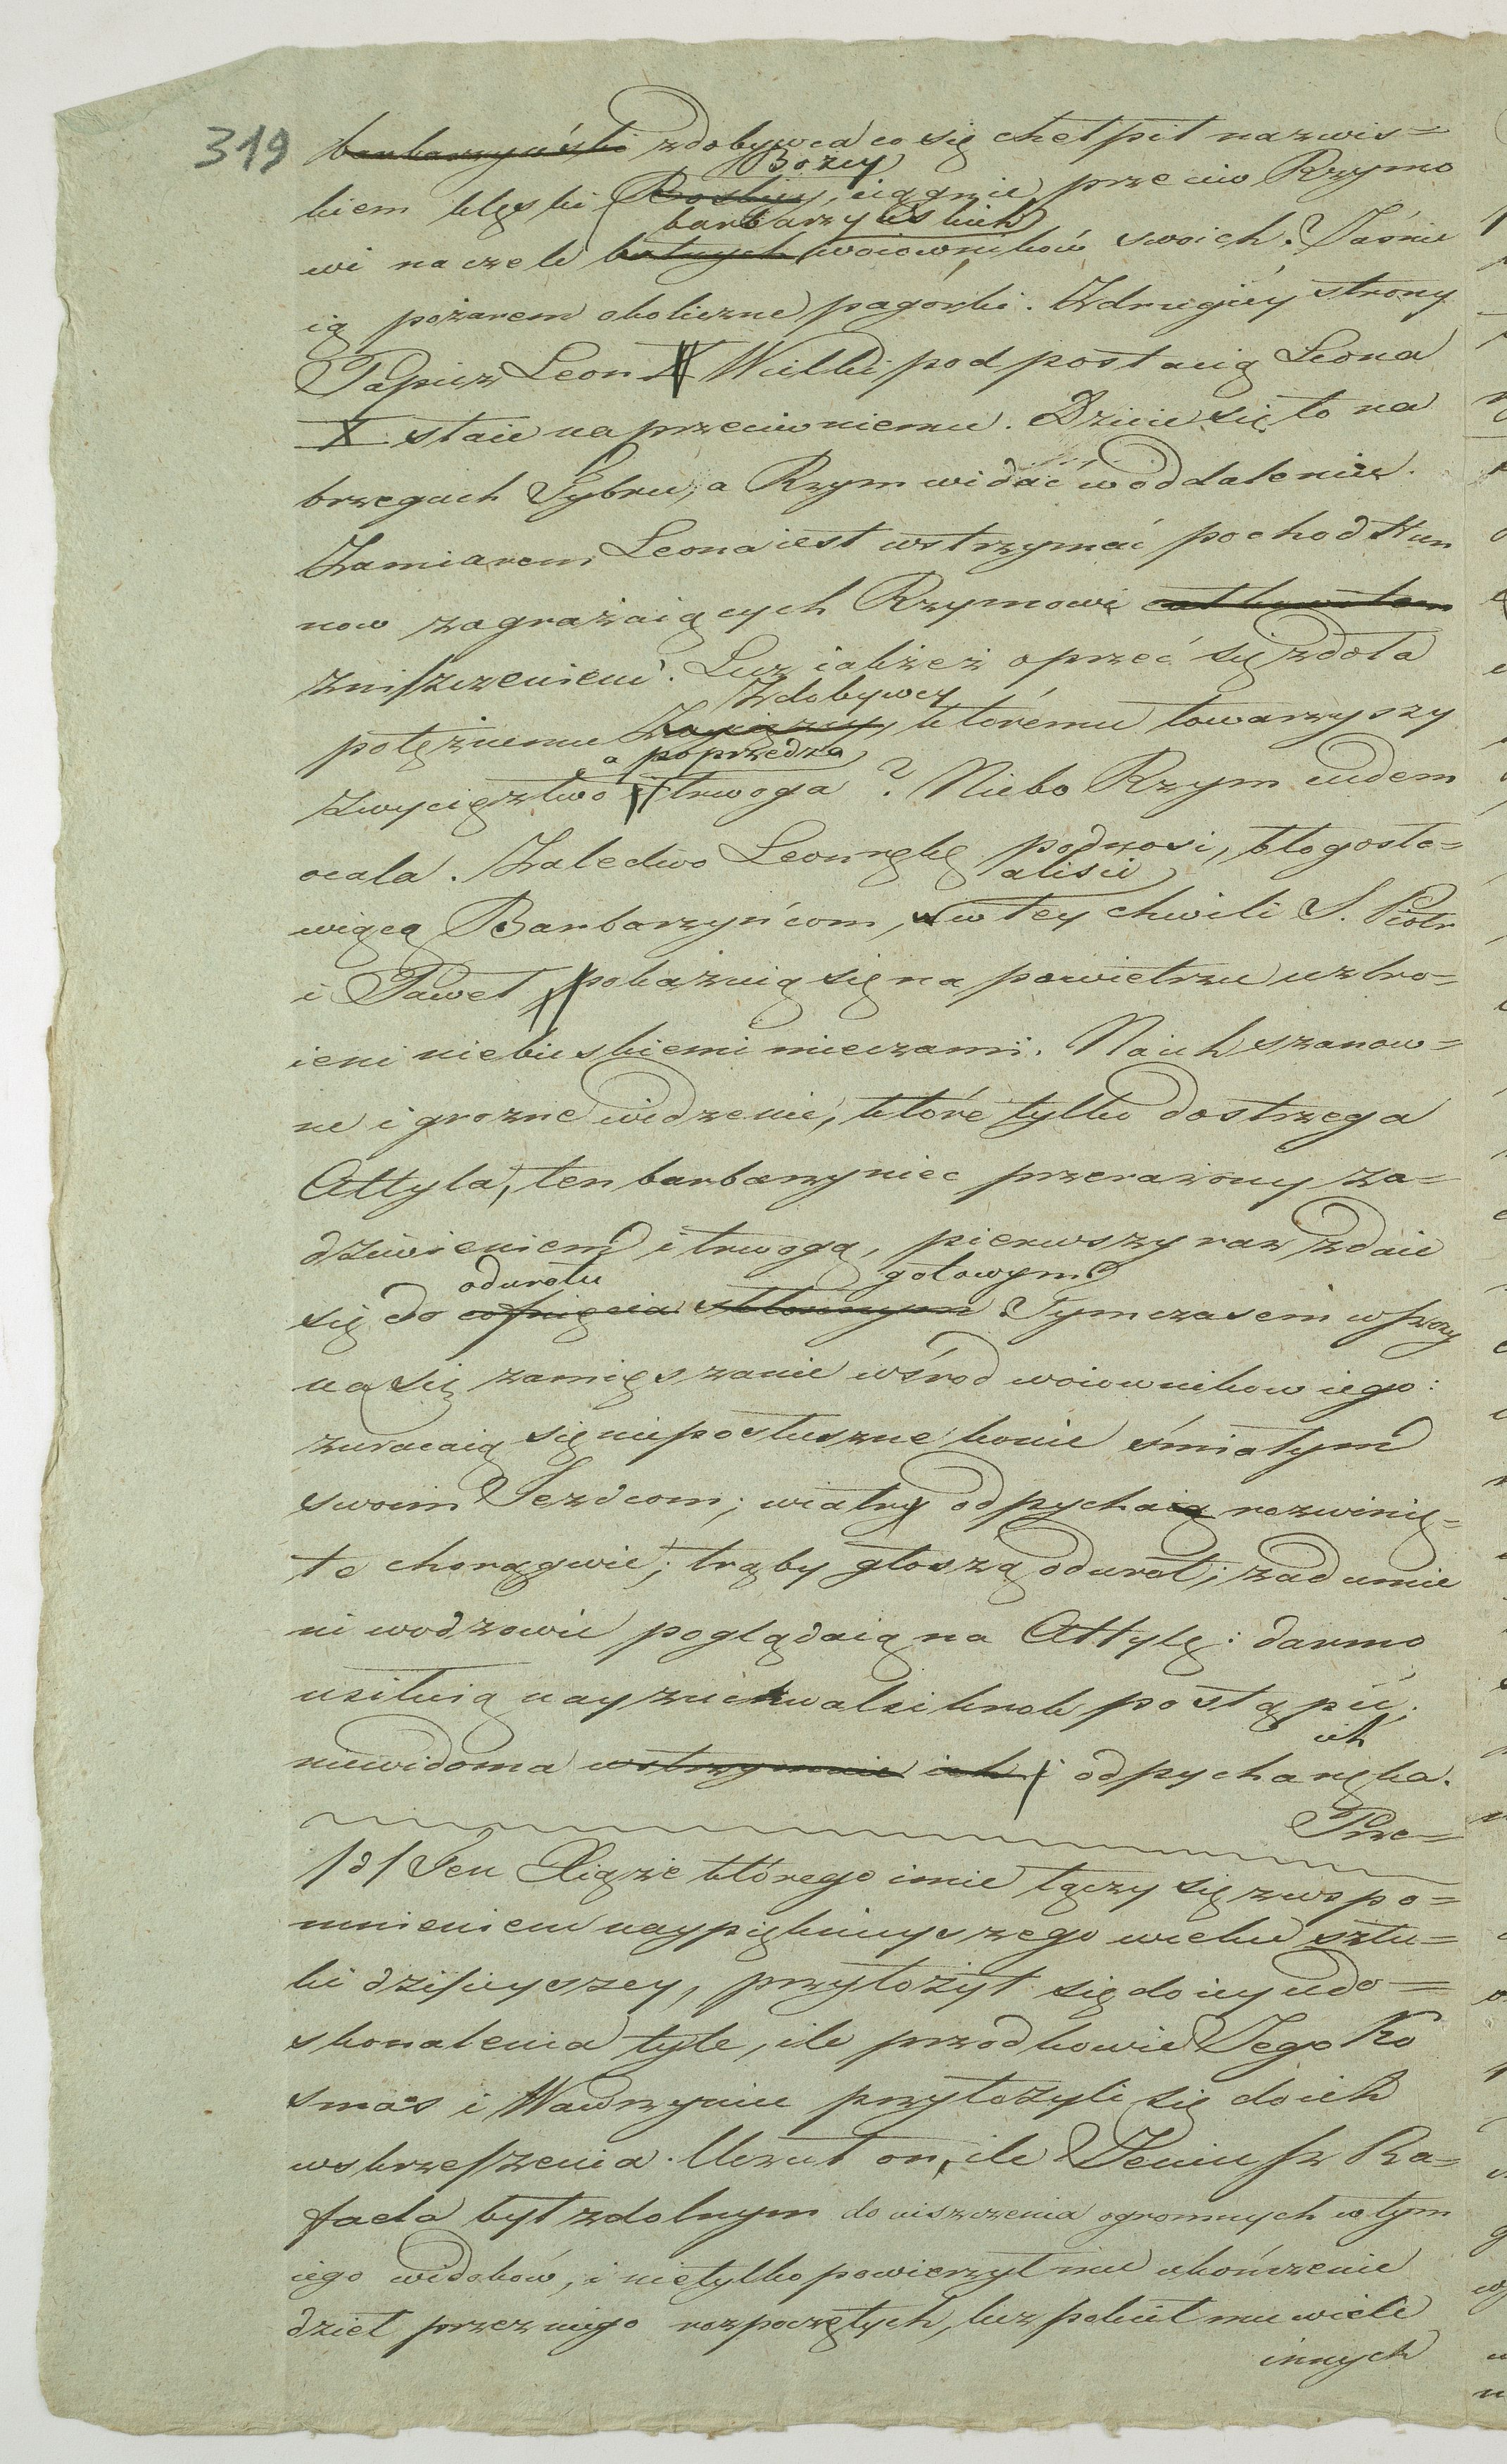 319
barbarzyński zdobywca co się chełpił nazwis=
Bożey
kiem klęski Boskiey, ciągnie przeciw Rzymo
barbarzyńskich
wi na czele woiowników swoich. Jaśnie
ią pożarem okoliczne pagórki. Z drugiéy strony
Papież Leon Wielki pod postacią Leona
X. staie naprzeciw niemu. Dzieie się to na
brzegach Tybru, a Rzym widać w oddaleniu.
Zamiarem Leona iest wstrzymać pochod Hun
now zagrażaiących Rzymowi
zniszczeniem. Lecz iakżeż oprzeć się zdoła
Zdobywcy
potężnemu któremu towarzyszy
a poprzedza
zwycięztwo i trwoga? Niebo Rzym cudem
ocala. Zaledwo Leon rękę podnosi, błogosła=
aliści
wiącą Barbarzyńcom, w tey chwili S. Piotr
i Paweł pokazuią się na powietrzu uzbro=
ieni niebieskiemi mieczami. Na ich szanow=
ne i grozne widzenie, które tylko dostrzega
Attyla, ten barbarzyniec przerażony za=
dziwieniem i trwogą, pierwszy raz zdaie
odwrotu gotowym
się do cofnięcia skłonnym. Tymczasem wszczy
na się zamięszanie wśrod woiownikow iego:
zwracaią się nieposłuszne konie śmiałym
swoim Jezdcom; wiatry odpychaią rozwinię=
te chorągwie; trąby głoszą odwrot; zadumie
ni wodzowie poglądaią na Attylę: darmo
usiłuią nayzuchwalsi krok postąpić;
ich
niewidoma wstrzymuie ich i odpycha ręka.
Prze=
/d/ Ten Xiąże którego imie łączy się z wspo=
mnieniem naypięknieyszego wieku sztu=
ki dzisieyszey, przyłożył się do iey udo=
skonalenia tyle, ile przodkowie Jego Ko
smas i Wawrzyniec przyłożyli się do ich
wskrzeszenia. Uczuł on, ile Jeniusz Ra=
faela był zdolnym do uiszczenia ogromnych w tym
iego widoków, i nietylko powierzył mu ukończenie
dzieł przez niego rozpoczętych, lecz polecił mu wiele
innych